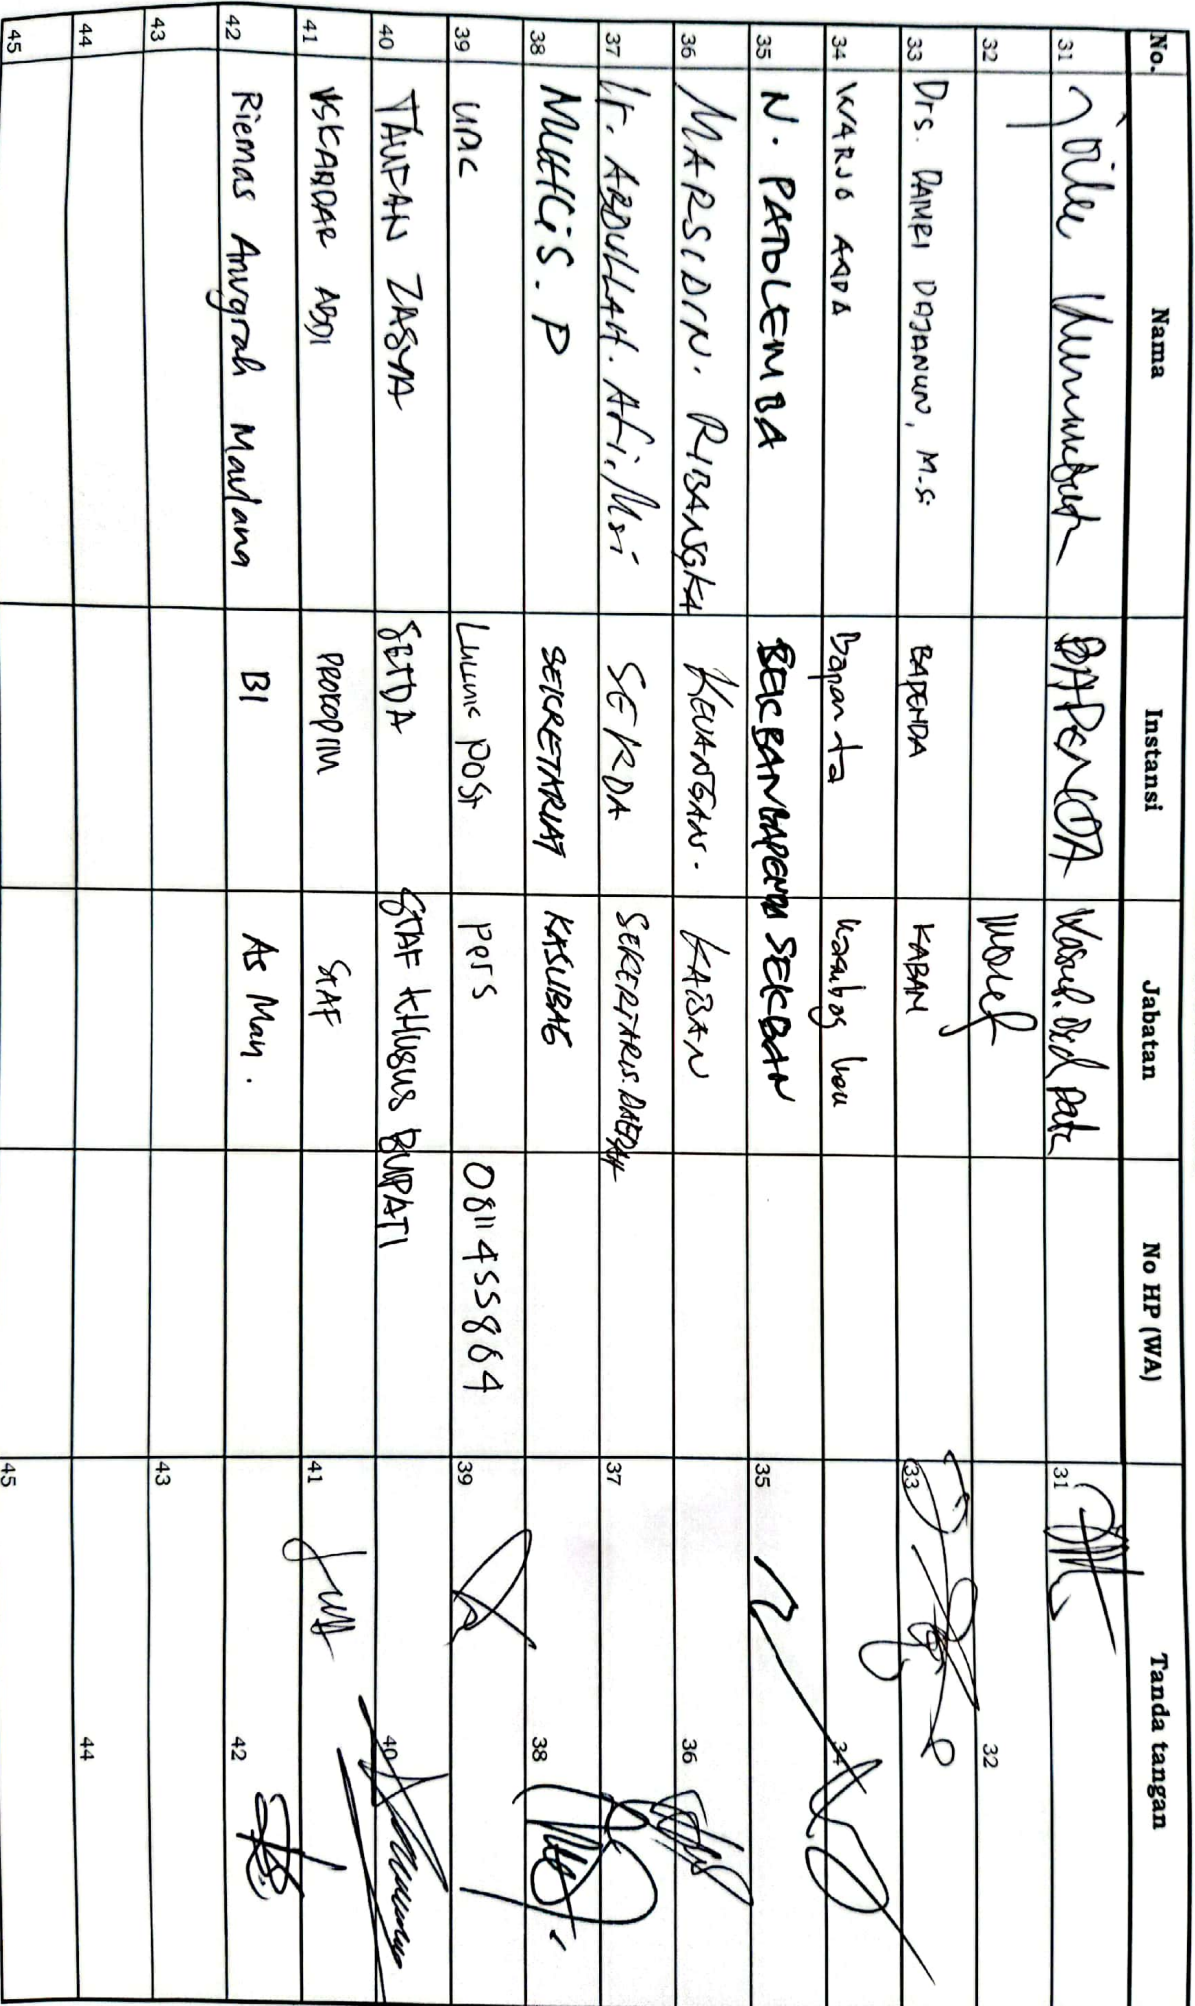 No. Nama Instansi Jabatan No HP (WA) Tanda tangan
31 BAPENDA 31
32 32
33 Drs. DAHRI DAJANUN, M.Si BAPENDA KABAN 33
34 WARJO Bapenda Kasubag keu 34
35 N. PATOLEMBA SEKBAN 35
36 MARSIDIN. RIBANGKA KEUANGAN. KABAN 36
37 Ir. ABDULLAH. Msi SEKDA SEKERTARIS. DAERAH 37
38 MUHLIS. P SEKRETARIAT KASUBAG 38
39 Post pers 0811455864 39
40 TAUFAN ZASYA SETDA STAF KHUSUS BUPATI 40
41 ISKANDAR ABDI PROKOPIM STAF 41
42 Riemas Anugrah Maulana BI As Man. 42
43 43
44 44
45 45